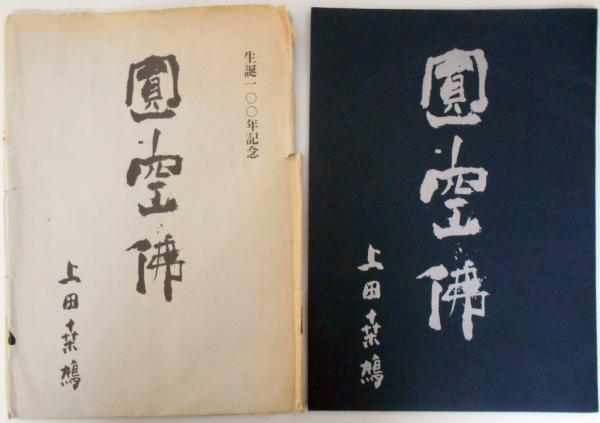 生誕一〇〇年記念
圓空佛
上田桑鳩
圓空佛
上田桑鳩